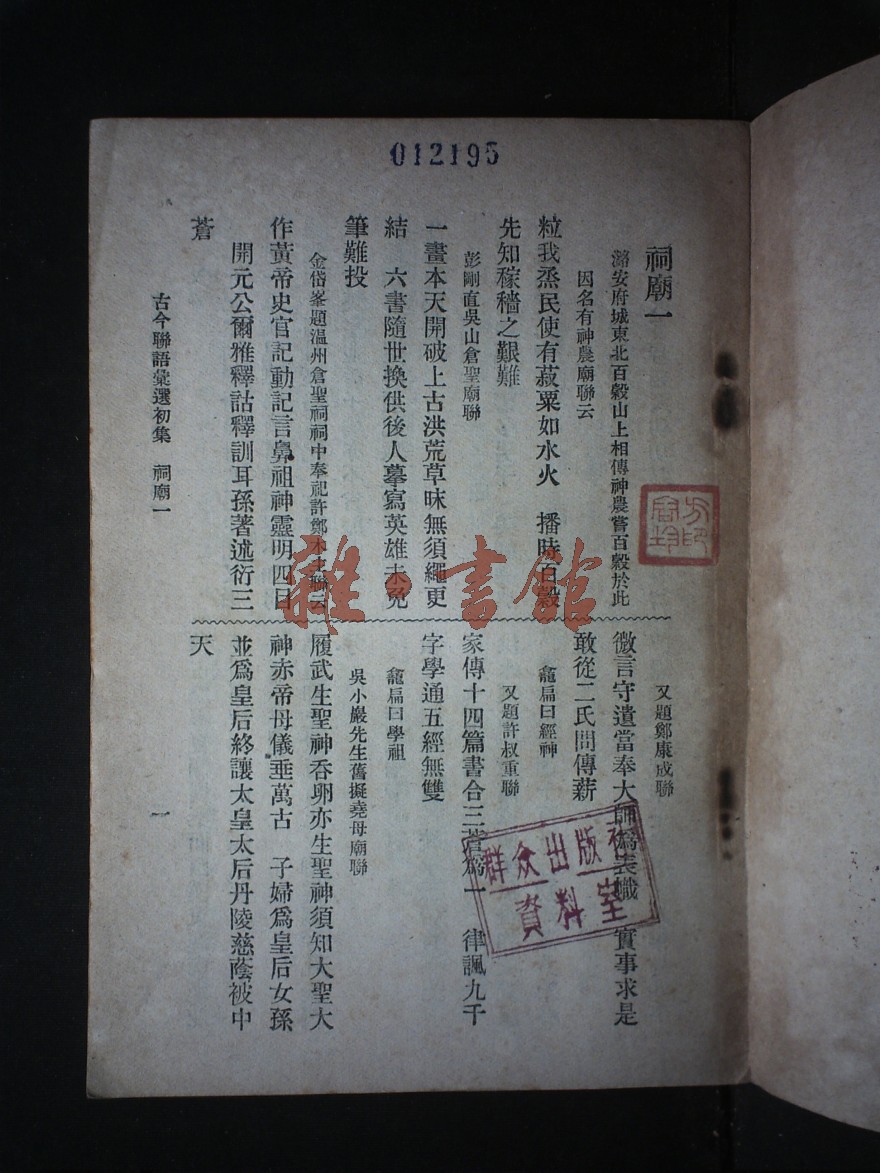 012195
祠廟一
潞安府城東北百穀山上相傳神農嘗百穀於此
因名有神農廟聯云
粒我烝民使有菽粟如水火　播時百穀
先知稼穡之艱難
彭剛直吳山倉聖廟聯
一畫本天開破上古洪荒草昧無須繩更
結　六書隨世換供後人摹寫英雄未免
筆難投
金岱峯題溫州倉聖祠祠中奉祀許鄭木主聯云
作黃帝史官記動記言鼻祖神靈明四目
開元公爾雅釋詁釋訓耳孫著述衍三
蒼
又題鄭康成聯
微言守遺當奉大師為表幟　實事求是
敢從二氏問傳薪
龕扁曰經神
又題許叔重聯
家傳十四篇書合三蒼為一　律諷九千
字學通五經無雙
龕扁曰學祖
吳小巖先生舊擬堯母廟聯
履武生聖神吞卵亦生聖神須知大聖大
神赤帝母儀垂萬古　子婦為皇后女孫
並為皇后終讓太皇太后丹陵慈蔭被中
天
古今聯語彙選初集　祠廟一
一
雜·書館
群众出版社
資料室